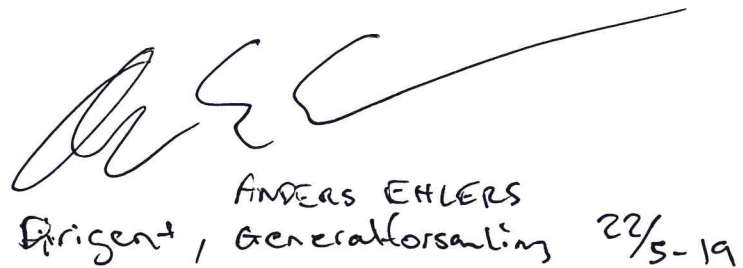 ANDERS EHLERS
Dirigent, Generalforsamling 22/5-19